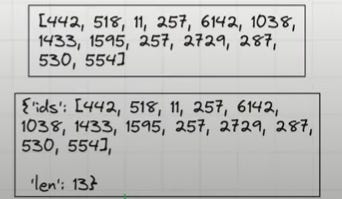 [442, 518, 11, 257, 6142, 1038,
1433, 1595, 257, 2729, 287,
530, 554]
{'ids': [442, 518, 11, 257, 6142,
1038, 1433, 1595, 257, 2729, 287,
530, 554],
'len': 13}